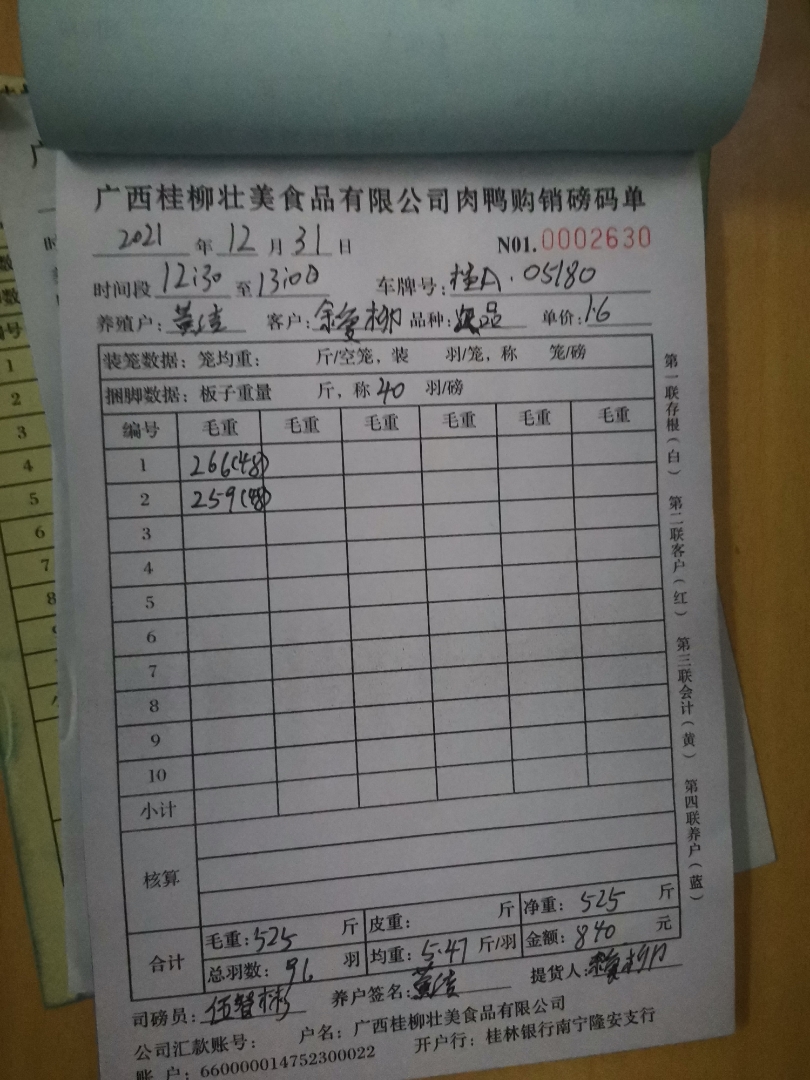 广西桂柳壮美食品有限公司肉鸭购销磅码单
2021 年 12 月 31 日 N01.0002630
时间段 12:30 至 13:00 车牌号: 桂A·05180
养殖户: 黄 客户: 余 柳 品种: 品 单价: 1.6
装笼数据: 笼均重: 斤/空笼, 装 羽/笼, 称 笼/磅
捆脚数据: 板子重量 斤, 称 40 羽/磅
编号 毛重 毛重 毛重 毛重 毛重 毛重
1 266(48)
2 259(48)
3
4
5
6
7
8
9
10
小计
核算
合计
毛重: 525 斤 皮重: 斤 净重: 525 斤
总羽数: 96 羽 均重: 5.47 斤/羽 金额: 840 元
司磅员: 伍智彬 养户签名: 黄 提货人:
公司汇款账号: 户名: 广西桂柳壮美食品有限公司
账 户: 660000014752300022 开户行: 桂林银行南宁隆安支行
第一联存根(白) 第二联客户(红) 第三联会计(黄) 第四联养户(蓝)
1
2
3
4
5
6
7
8